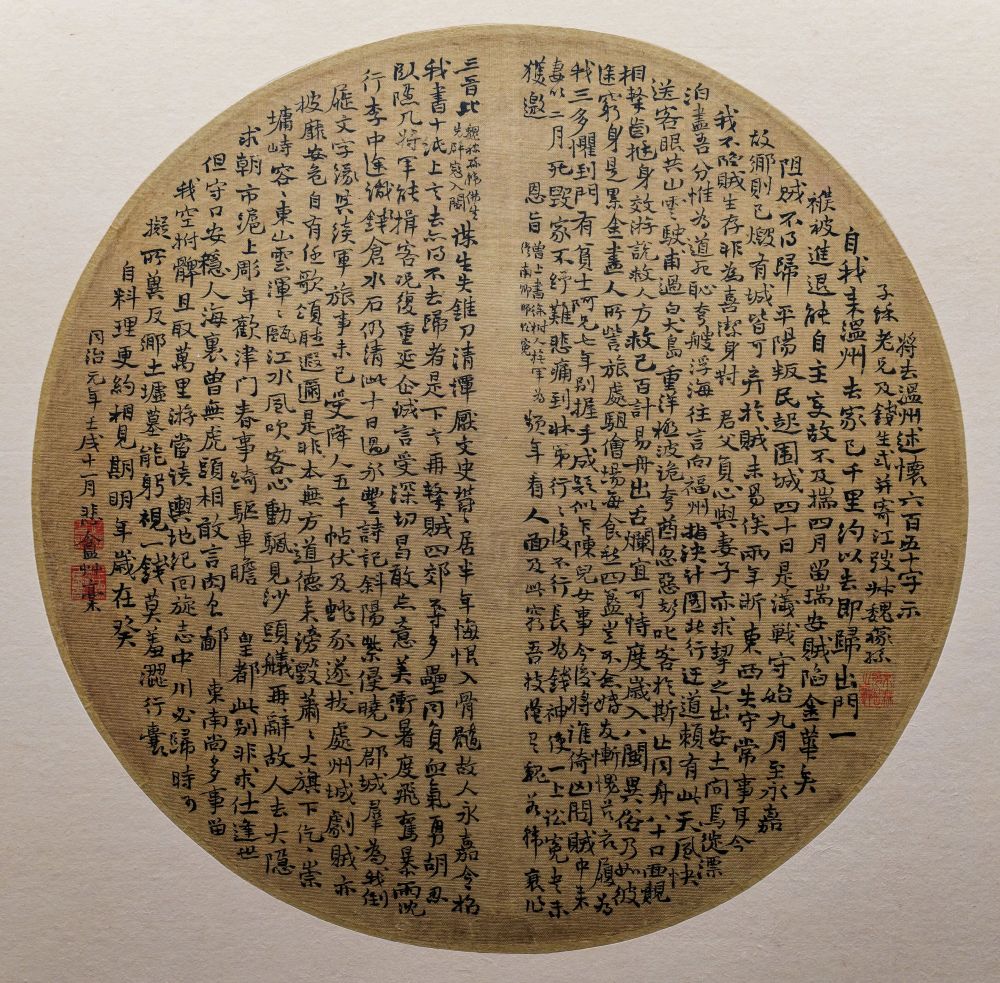 将去溫州述懷六百五十字示
子餘老兄及錢生式并寄江弢叔魏稼孫
自我来溫州去家已千里約以去即歸出門一
襆被進退能自主变故不及揣四月留瑞安賊陷金華矣
阻賊不得歸平陽叛民起圍城四十日是議戰守始九月至永嘉
故鄉則已燬有城皆可弃於賊未易俟两年昕東西失守常事耳今
我不陷賊生存非為喜潔身對君父負心與妻子亦求挈之出安土向焉徙漂
泊盡吾分惟為道死恥夸艘浮海往言向福州指決計圖北行迂道賴有此天風快
送客眼共山駛甫過白大島重洋極波詭夸酋忽惡彭叱客於斯止同舟八十口面覩
相挈首拖身效游說救人方救己百計易舟出舌爛宜可恃度歲入八閩異俗乃如彼
途窮身是累金盡人所訾旅處駔儈場每食愁四簋豈不金好友慚愧苦衣履為
我三多懼到門有貧士阿兄七年別握手成疑似下陳兒女事今後將誰倚凶問賊中来
妻以二月死毀家不紓難悲痛到牀第行行復不行長為錢神使一上訟冤書未
獲邀恩旨曾上書徐樹人撫軍為修南卿明經訟冤頻年看人面及此窮吾技僅足魏蒋偉衰心
三晋比魏稼孫蒋佛生先群寇入閩謀生失錐刀清譚厭文史贅贅居半年悔恨入骨髓故人永嘉令招
我書十紙上言去亦得不去歸者是下言再挈賊四郊予多壘同負血氣勇胡忍
臥隱几将軍能揖客况復重延企诚言受深切曷敢亦意美衝暑度飛奮暴雨况
行李中途漑鋒倉水石仍清泚十日過永豐詩記斜陽紫侵曉入郡城羣為我倒
屣文字緣具续軍旅事未已受降人五千帖伏及蚍豕遂拔處州城劇賊亦
披靡安危自有任歌頌聽遐邇是非本無方道德来滂毁蕭蕭大旗下仡仡崇
墉峙容容東山雲渾渾甌江水風吹客心動飄見沙頭艤再辭故人去大隱
求朝市滬上彫年歡津門春事綺驅車瞻皇都此别非求仕逢世
但守口安穩人海裏曾無虎頭相敢言肉食鄙東南尚多事留
我空拊髀且取萬里游當读輿地纪回旋志中川必歸時可
擬所冀反鄉土墟墓能躬視一錢莫羞澀行囊
自料理更約相見期明年歲在癸
同治元年壬戌十一月悲盦艸藁